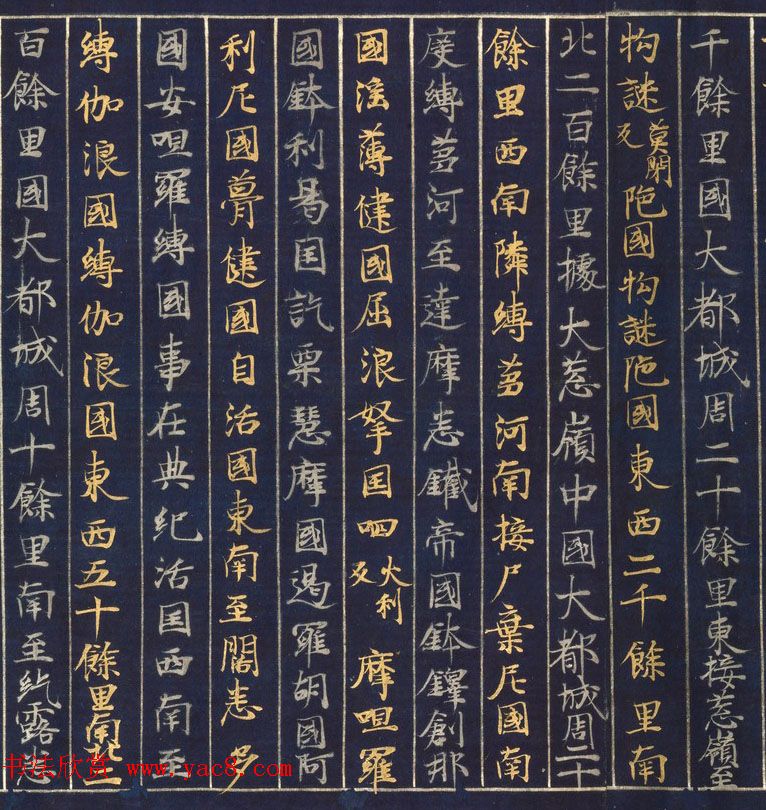 千餘里國大都城周二十餘里東接葱嶺至
拘謎莫閇反陁國拘謎陁國東西二千餘里南
北二百餘里據大葱嶺中國大都城周二十
餘里西南隣縛芻河南接尸棄尼國南
度縛芻河至達摩悉鐵帝國鉢鐸創那
國淫薄健國屈浪拏国呬火利反摩呾羅
國鉢利曷国訖栗慧摩國遏羅胡國阿
利尼國瞢健國自活國東南至闊悉多
國安呾羅縛國事在典紀活国西南至
縛伽浪國縛伽浪國東西五十餘里南北二
百餘里國大都城周十餘里南至紇露悉
书法欣赏 www.yac8.com